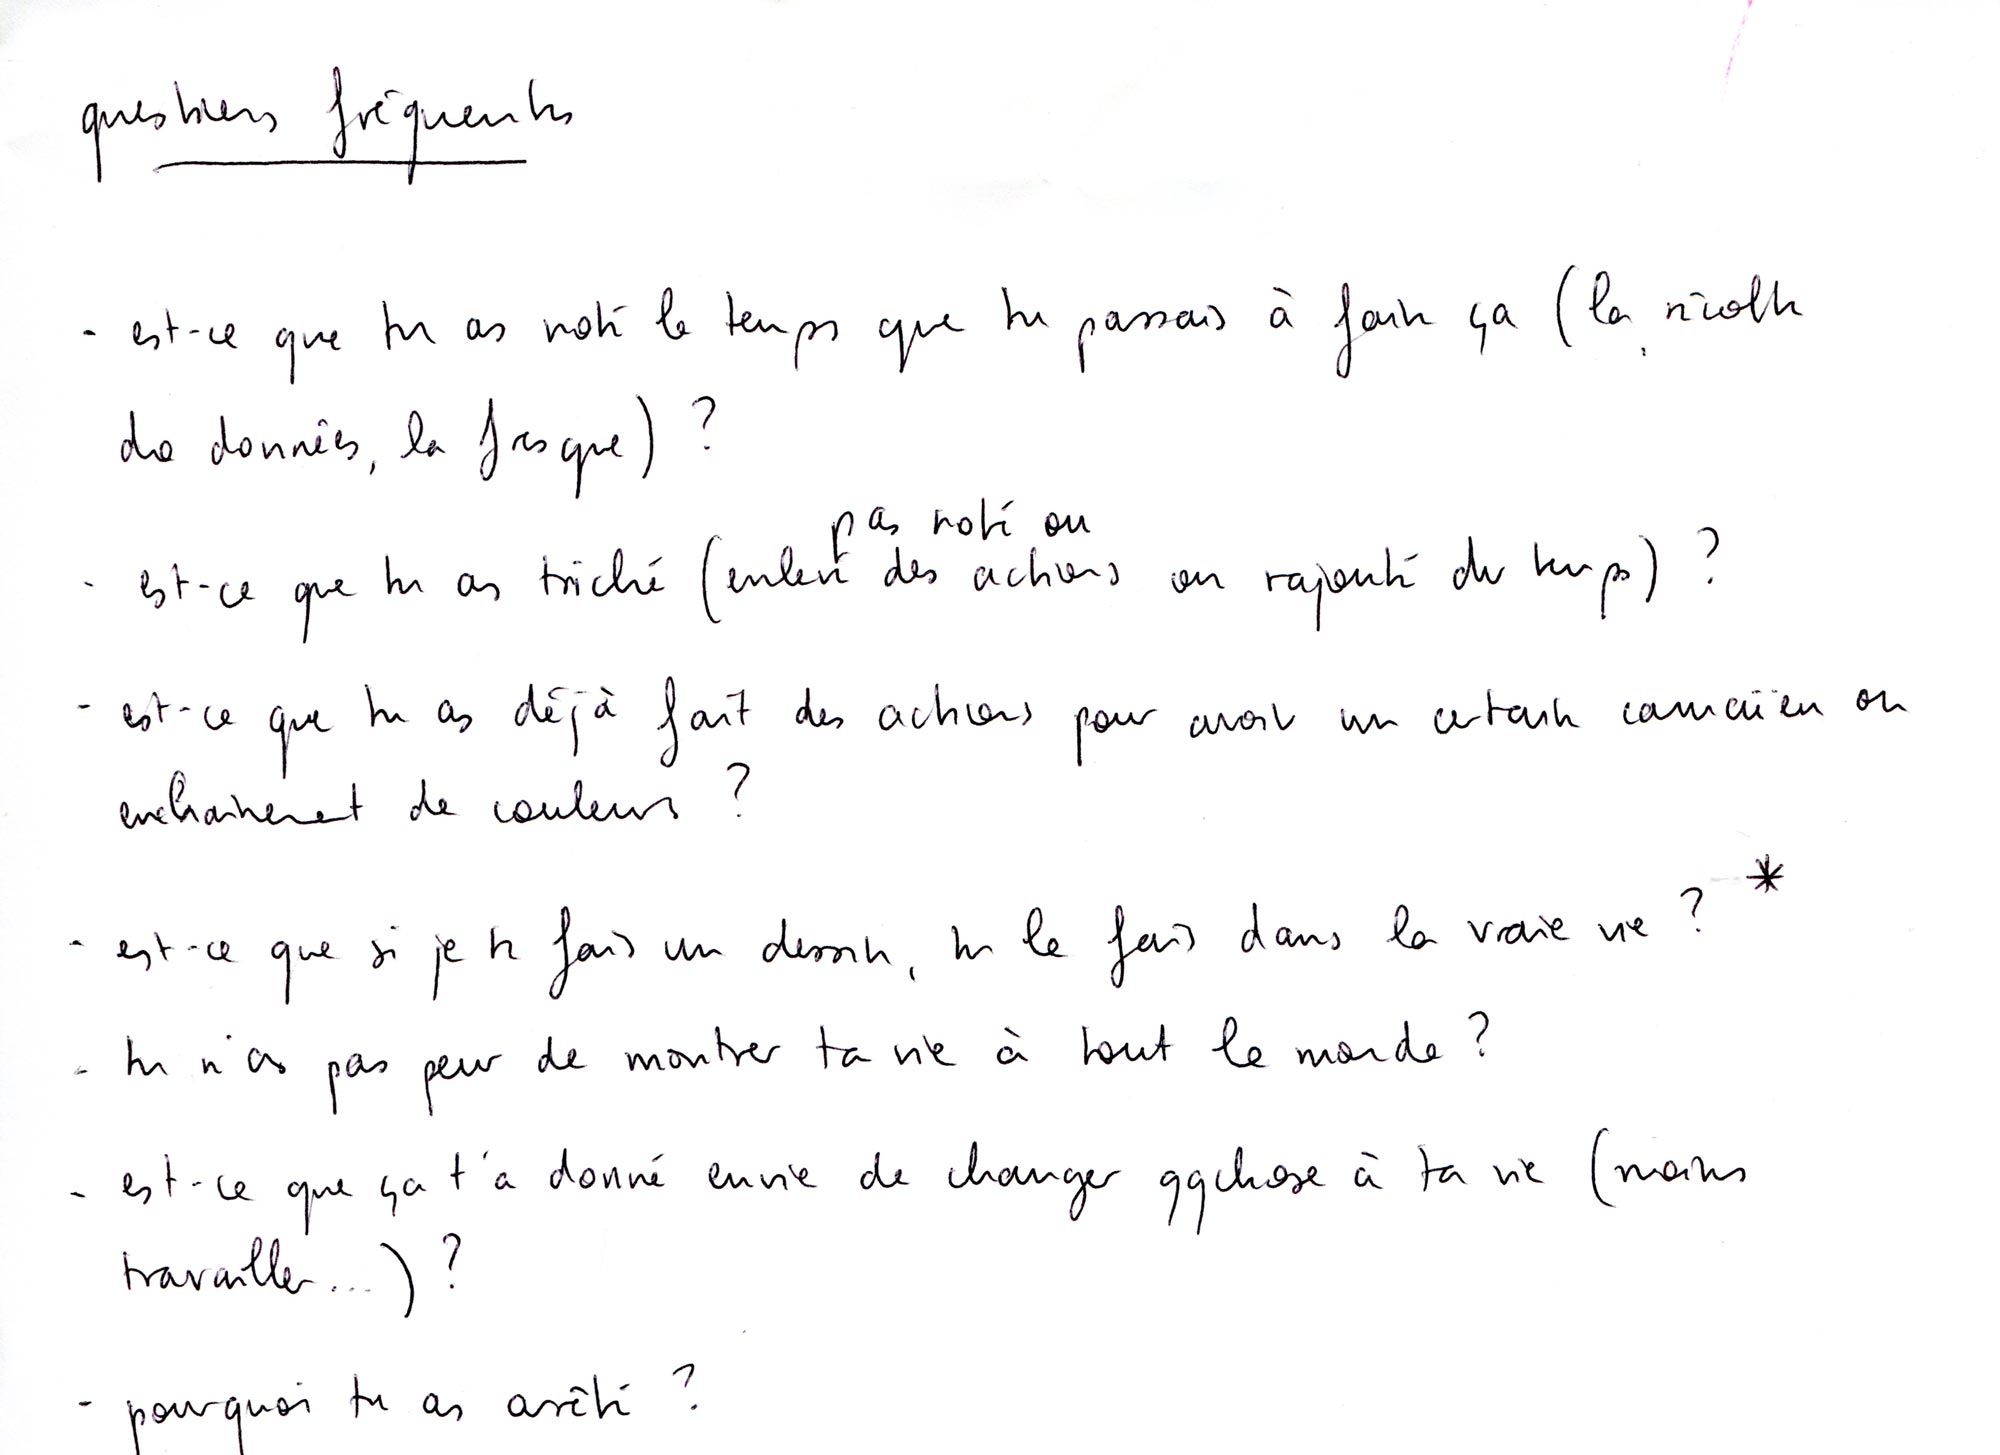 questions fréquentes
- est-ce que tu as noté le temps que tu passais à faire ça (la récolte
de données, la fresque) ?
pas noté ou
- est-ce que tu as triché (enlevé des actions ou rajouté du temps) ?
- est-ce que tu as déjà fait des actions pour avoir un certain camaïeu ou
enchainement de couleurs ?
- est-ce que si je te fais un dessin, tu le fais dans la vraie vie ? *
- tu n'as pas peur de montrer ta vie à tout le monde ?
- est-ce que ça t'a donné envie de changer qqchose à ta vie (moins
travailler...) ?
- pourquoi tu as arrêté ?